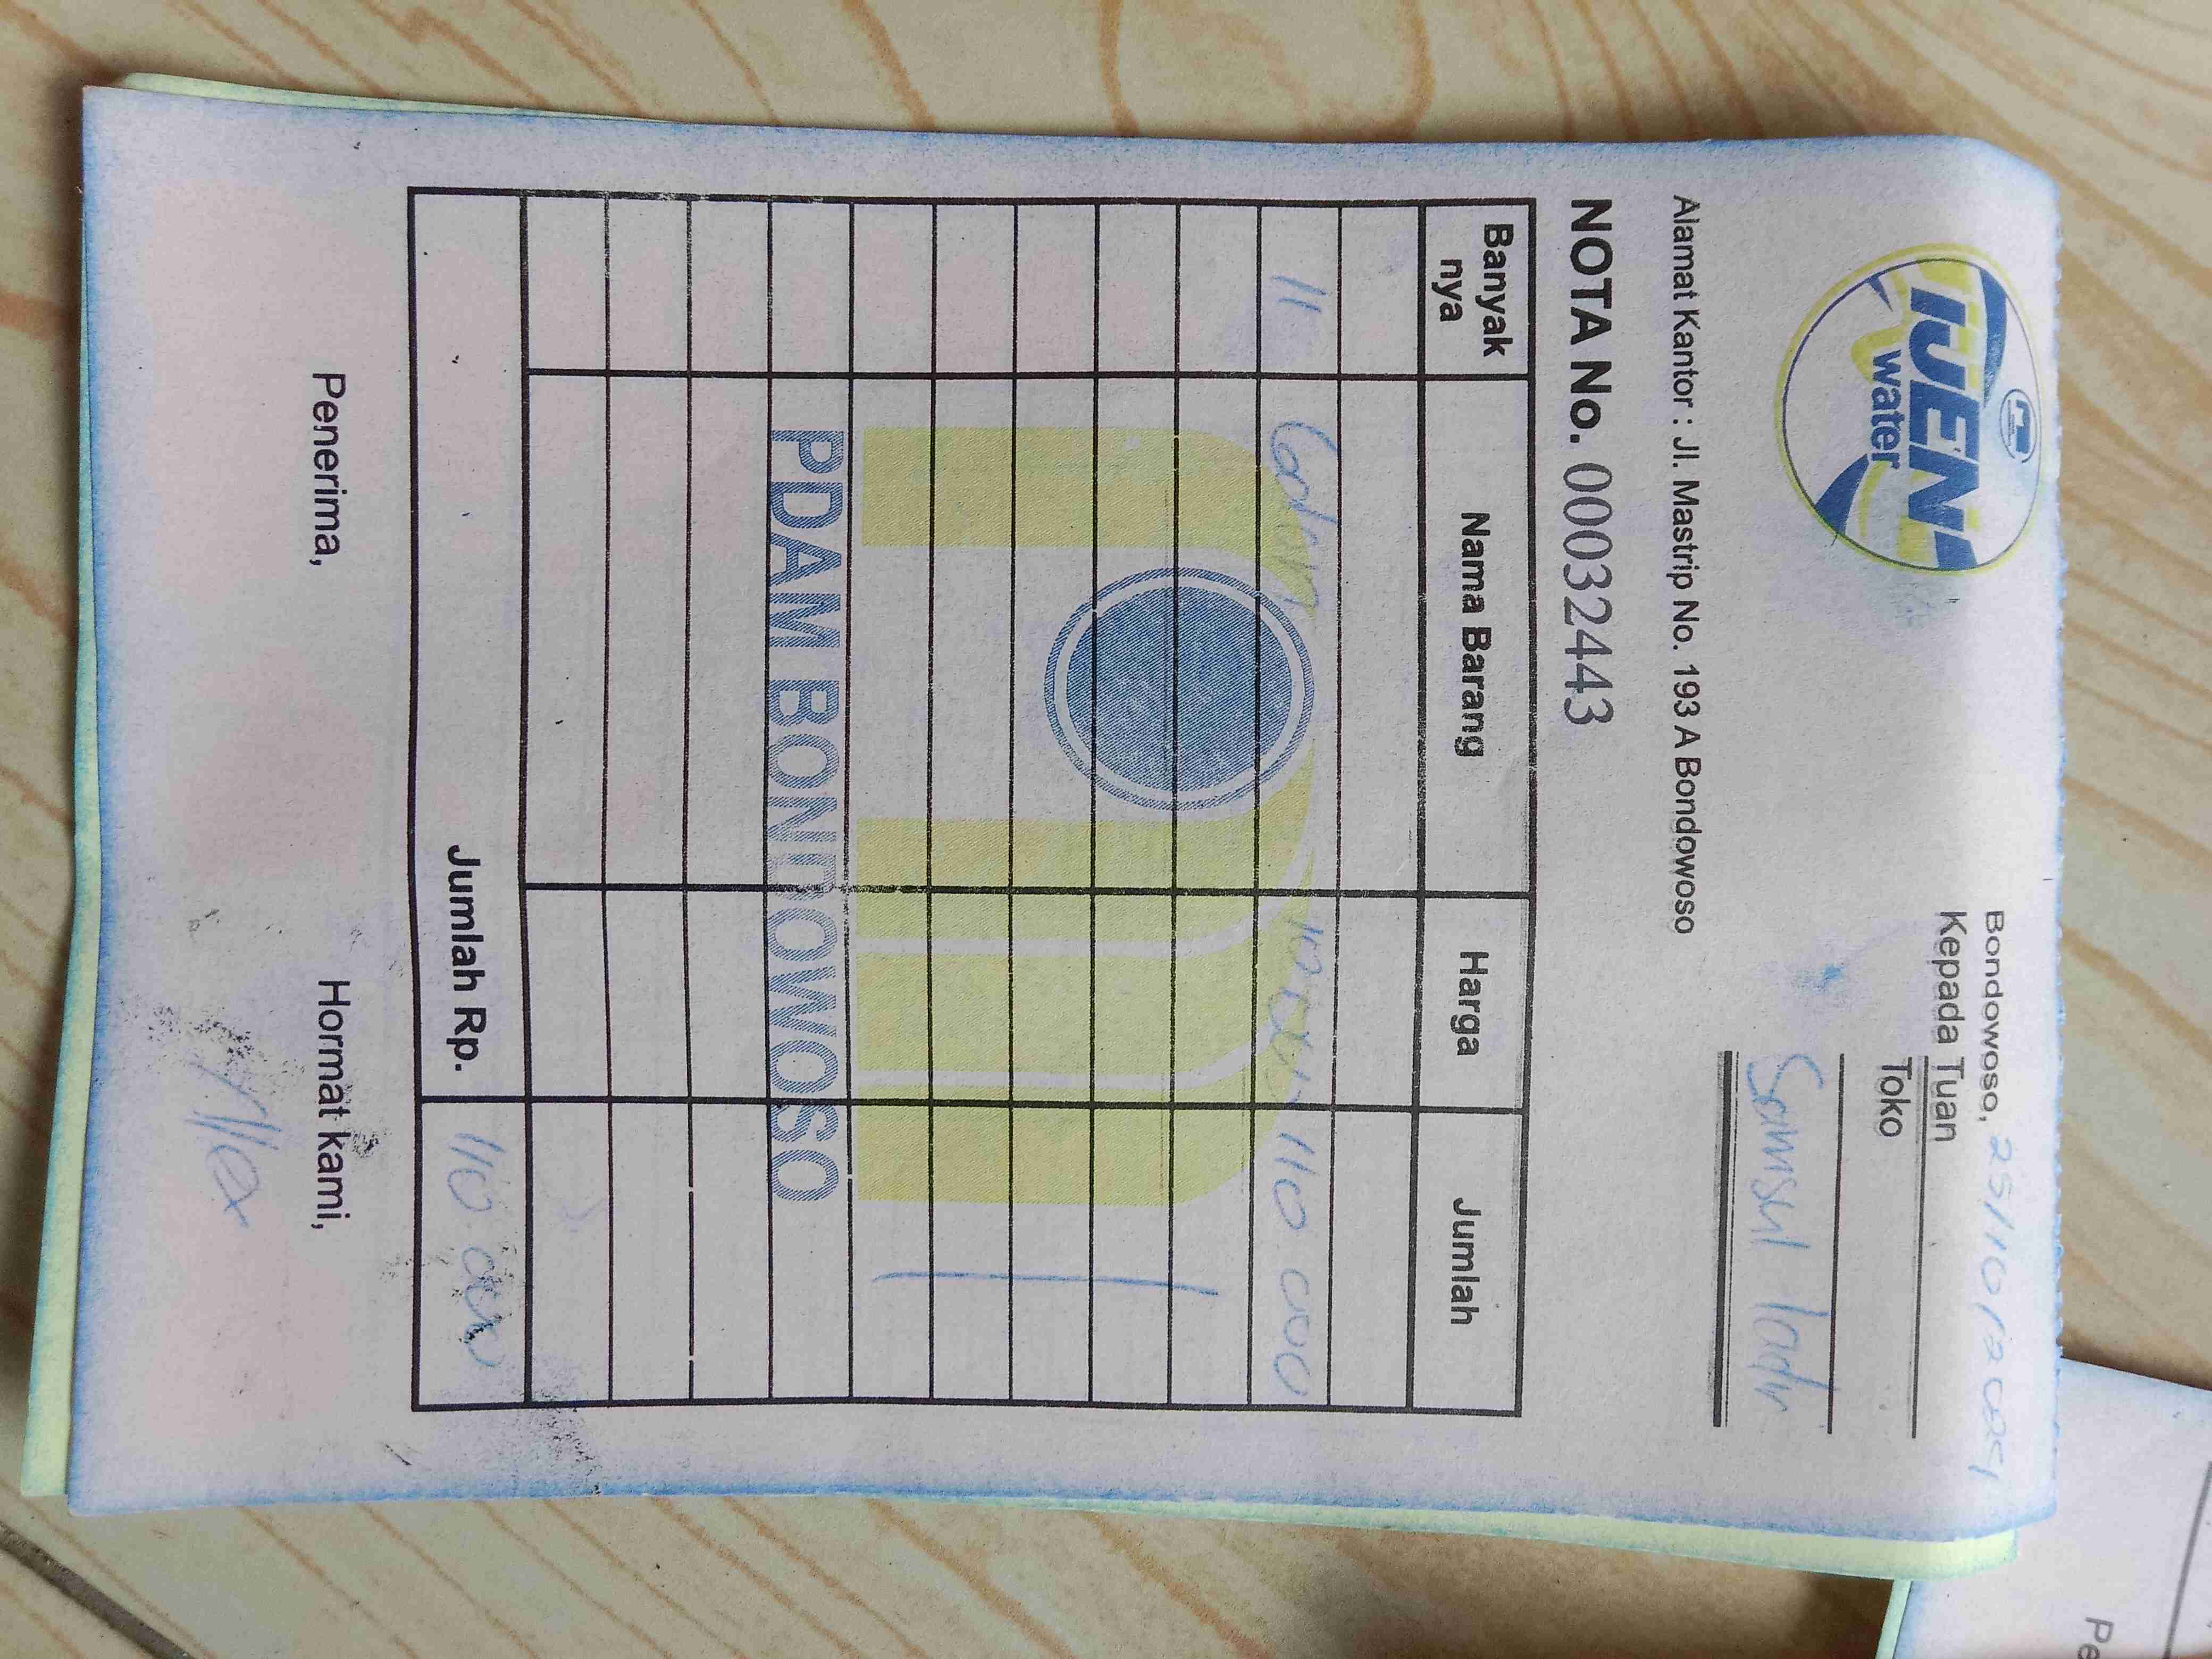 IJEN
water
Bondowoso, 25/10/2025
Kepada Tuan
Toko
Samsul
Alamat Kantor : Jl. Mastrip No. 193 A Bondowoso
NOTA No. 00032443
Banyak nya Nama Barang Harga Jumlah
11 Galon 10.000 110.000
PDAM BONDOWOSO
Jumlah Rp. 110.000
Penerima, Hormat kami,
Alex
Pe